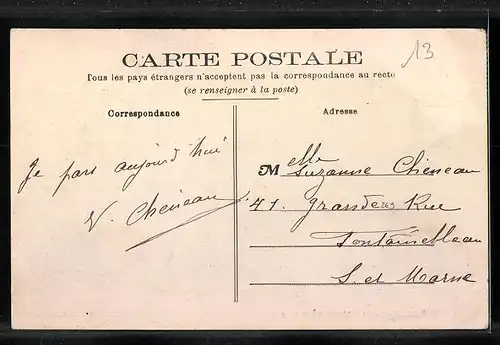 CARTE POSTALE
13
Tous les pays étrangers n'acceptent pas la correspondance au recto
(se renseigner à la poste)
Correspondance
Je pars aujourd'hui
V. Cheneau
Adresse
Melle Suzanne Cheneau
41. Grande Rue
Fontainebleau
S. et Marne